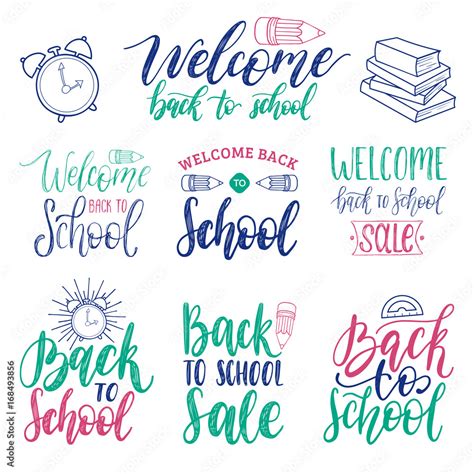 Welcome
back to school
Welcome
BACK TO
School
WELCOME BACK
TO
School
WELCOME
back to school
SALE
Back
TO
School
Back
TO SCHOOL
Sale
Back
to
School
Adobe Stock | #168493856